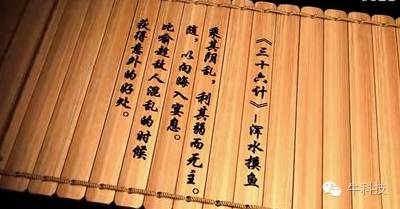 《三十六计》—浑水摸鱼
乘其阴乱，利其弱而无主。
随，以向晦入宴息。
比喻趁敌人混乱的时候
获得意外的好处。
牛科技